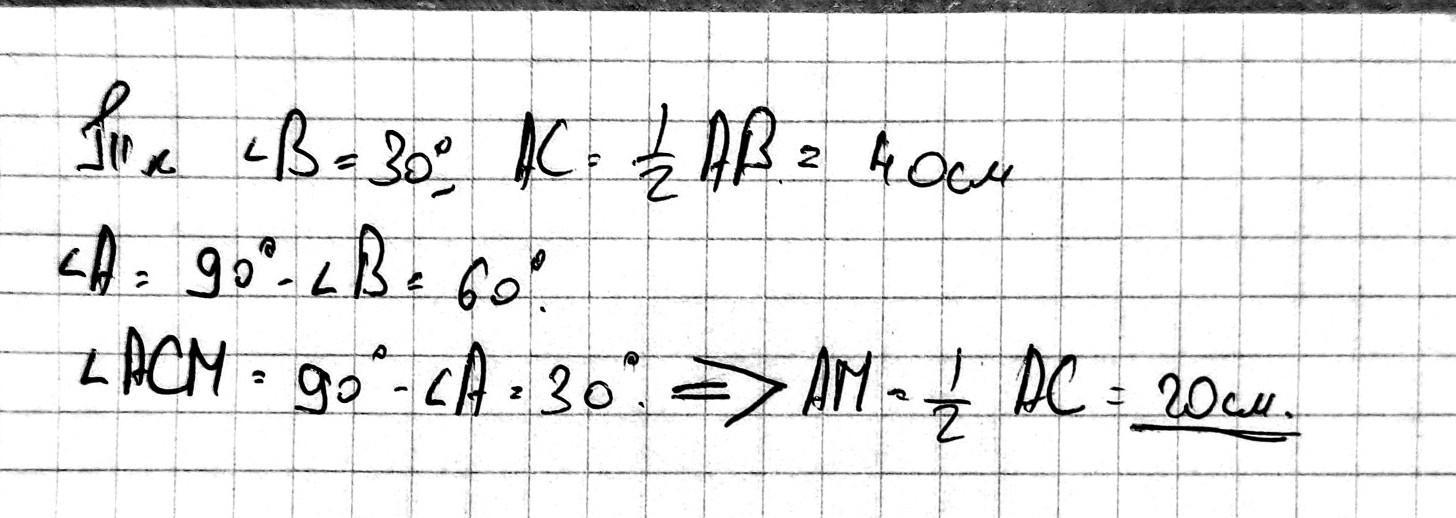 Т.к ∠B = 30°, AC = 1/2 AB = 40см
∠A = 90° - ∠B = 60°.
∠ACM = 90° - ∠A = 30°. => AM = 1/2 AC = 20см.